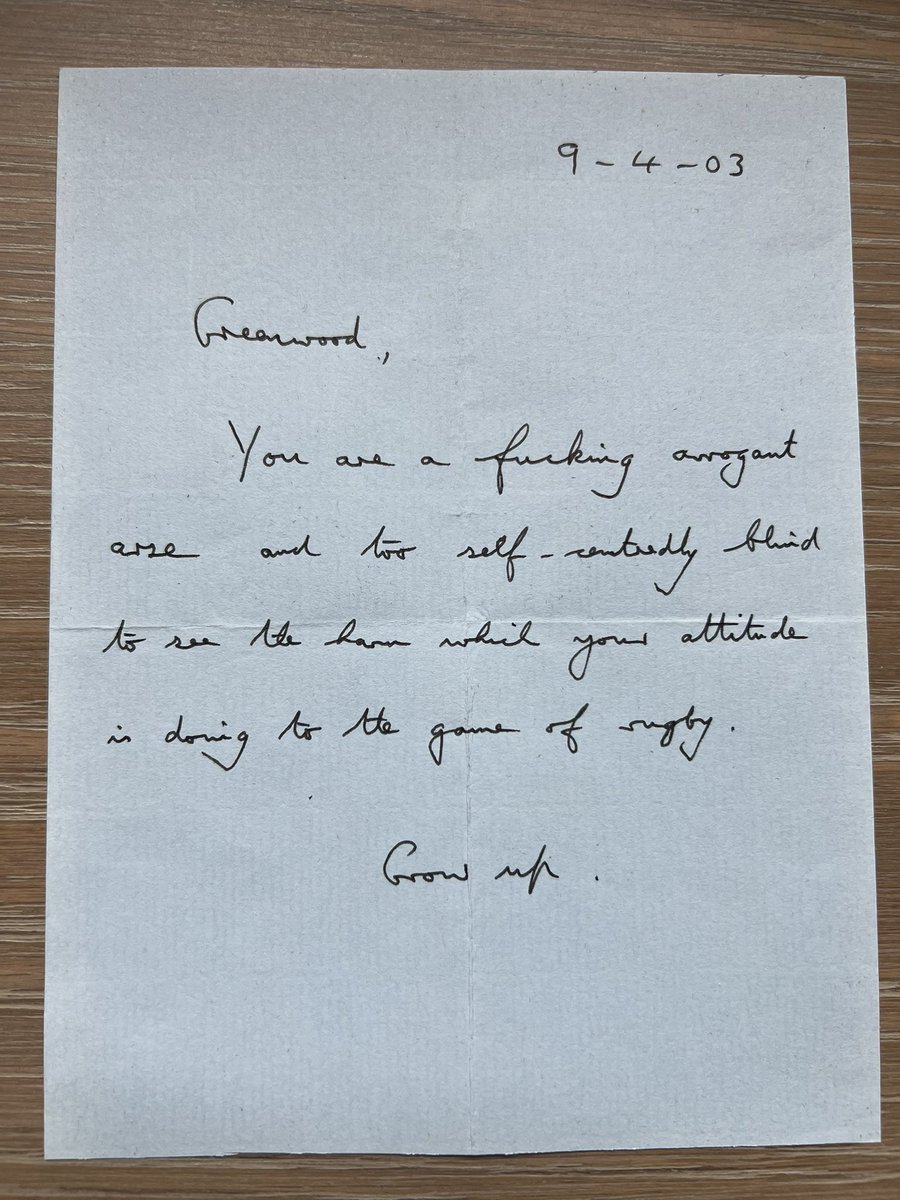 9-4-03
Greenwood,
You are a fucking arrogant
arse and too self-centredly blind
to see the harm which your attitude
is doing to the game of rugby.
Grow up.